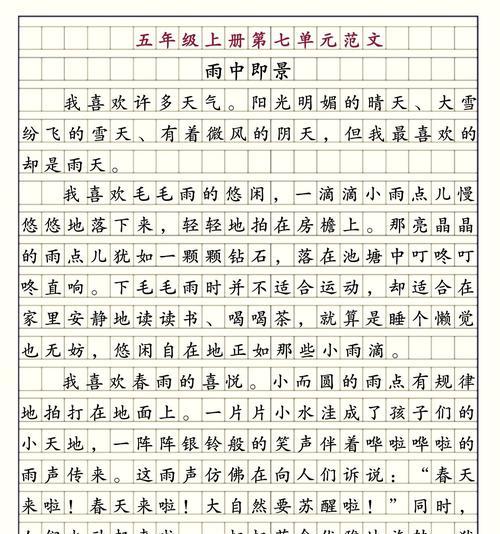 五年级上册第七单元范文
雨中即景
我喜欢许多天气。阳光明媚的晴天、大雪
纷飞的雪天、有着微风的阴天，但我最喜欢的
却是雨天。
我喜欢毛毛雨的悠闲，一滴滴小雨点儿慢
悠悠地落下来，轻轻地拍在房檐上。那亮晶晶
的雨点儿犹如一颗颗钻石，落在池塘中叮咚叮
咚直响。下毛毛雨时并不适合运动，却适合在
家里安静地读读书、喝喝茶，就算是睡个懒觉
也无妨，悠闲自在地正如那些小雨滴。
我喜欢春雨的喜悦。小而圆的雨点有规律
地拍打在地面上。一片片小水洼成了孩子们的
小天地，一阵阵银铃般的笑声伴着哗啦哗啦的
雨声传来。这雨声仿佛在向人们诉说：“春天
来啦！春天来啦！大自然要苏醒啦！”同时，